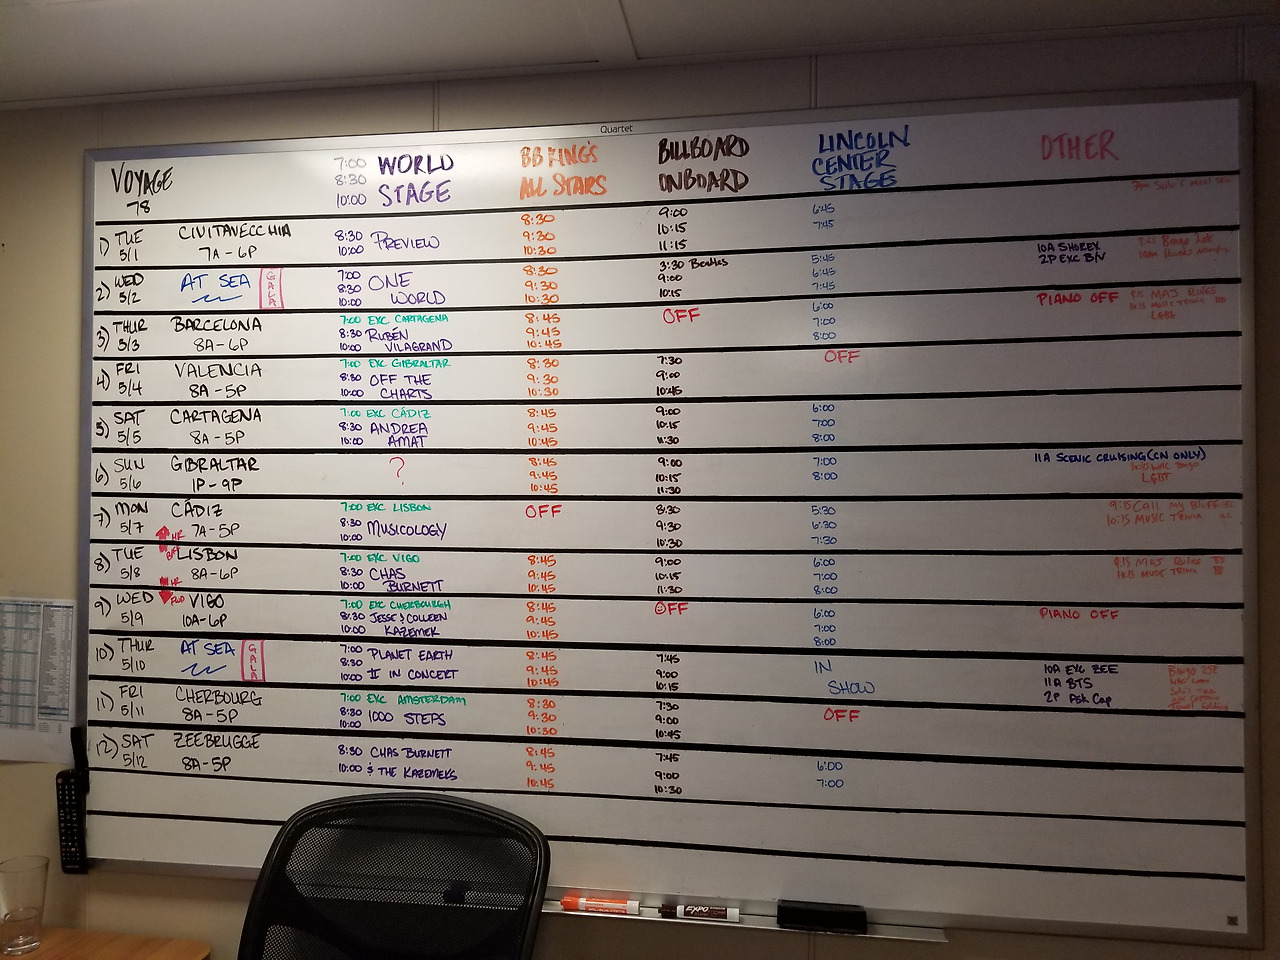 Quartet
VOYAGE
78
7:00
8:30
10:00
WORLD
STAGE
BB KING'S
ALL STARS
BILLBOARD
ONBOARD
LINCOLN
CENTER
STAGE
OTHER
1) TUE
5/1
CIVITAVECCHIA
7A-6P
8:30
10:00
PREVIEW
8:30
9:30
10:30
9:00
10:15
11:15
6:45
7:45
10A SHOREX
2P EXC B/N
2) WED
5/2
AT SEA
GALA
7:00
8:30
10:00
ONE
WORLD
8:30
9:30
10:30
3:30 Beatles
9:00
10:15
5:45
6:45
7:45
PIANO OFF
3) THUR
5/3
BARCELONA
8A-6P
7:00 EXC CARTAGENA
8:30 RUBÉN
10:00 VILAGRAND
8:45
9:45
10:45
OFF
6:00
7:00
8:00
LGBT
4) FRI
5/4
VALENCIA
8A-5P
7:00 EXC GIBRALTAR
8:30 OFF THE
10:00 CHARTS
8:30
9:30
10:30
7:30
9:00
10:45
OFF
5) SAT
5/5
CARTAGENA
8A-5P
7:00 EXC CÁDIZ
8:30 ANDREA
10:00 AMAT
8:45
9:45
10:45
9:00
10:15
11:30
6:00
7:00
8:00
6) SUN
5/6
GIBRALTAR
1P-9P
?
8:45
9:45
10:45
9:00
10:15
11:30
7:00
8:00
11A SCENIC CRUISING (CN ONLY)
LGBT
7) MON
5/7
CÁDIZ
7A-5P
HR
7:00 EXC LISBON
8:30
10:00
MUSICOLOGY
OFF
8:30
9:30
10:30
5:30
6:30
7:30
9:15 Call my Bluff
10:15 MUSIC TRIVIA
8) TUE
5/8
LISBON
8A-6P
HR
7:00 EXC VIGO
8:30 CHAS
10:00 BURNETT
8:45
9:45
10:45
9:00
10:15
11:30
6:00
7:00
8:00
9:15 MAJ RULES
10:15 MUSIC TRIVIA
9) WED
5/9
VIGO
10A-6P
7:00 EXC CHERBOURGH
8:30 JESSE & COLLEEN
10:00 KAZEMEK
8:45
9:45
10:45
OFF
6:00
7:00
8:00
PIANO OFF
10) THUR
5/10
AT SEA
GALA
7:00
8:30
10:00
PLANET EARTH
II IN CONCERT
8:45
9:45
10:45
7:45
9:00
10:15
IN
SHOW
10A EXC ZEE
11A BTS
2P Ask Cap
11) FRI
5/11
CHERBOURG
8A-5P
7:00 EXC AMSTERDAM
8:30
10:00
1000 STEPS
8:30
9:30
10:30
7:30
9:00
10:45
OFF
12) SAT
5/12
ZEEBRUGGE
8A-5P
8:30 CHAS BURNETT
10:00 & THE KAZEMEKS
8:45
9:45
10:45
7:45
9:00
10:30
6:00
7:00
EXPO